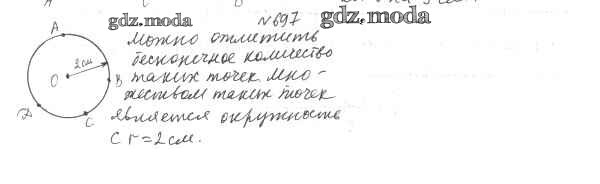 gdz.moda
№697
gdz.moda
A
можно отметить
2см
бесконечное количество
O
B
таких точек. Мно-
жеством таких точек
D
C
является окружность
с r = 2 см.